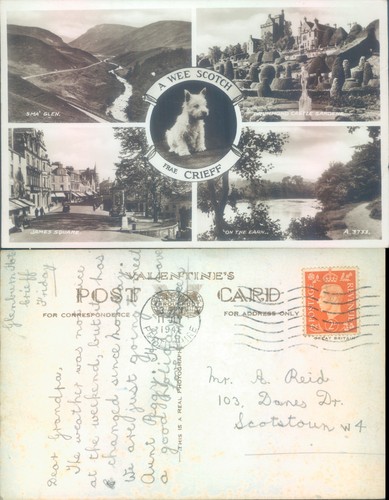 A WEE SCOTCH
FRAE
CRIEFF
SMA' GLEN.
DRUMMOND CASTLE GARDENS
JAMES SQUARE
"ON THE EARN."
A 3733.
VALENTINE'S
POST CARD
FOR CORRESPONDENCE
FOR ADDRESS ONLY
THIS IS A REAL PHOTOGRAPH
GREAT BRITAIN
Crieff
Friday
Dear Grandpa,
The weather was not nice
at the weekend, but it has
changed since
We are just going
Aunt Peggy.
a good
Mr. A. Reid
103, Danes Dr.
Scotstoun W4